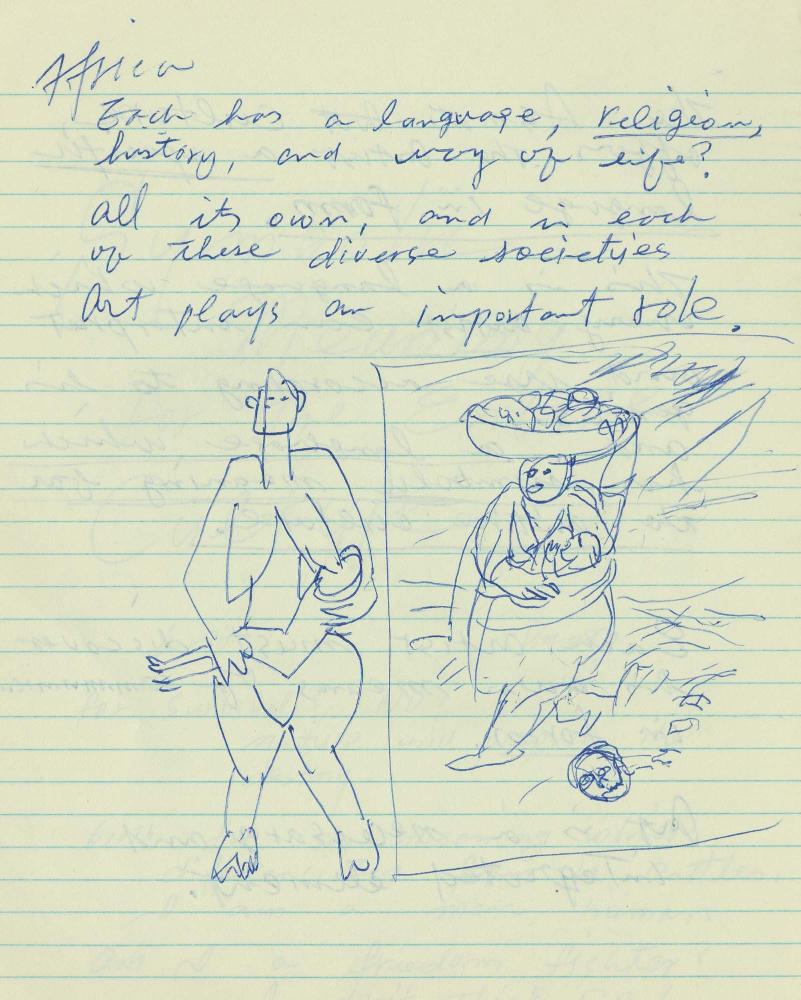 Africa
Each has a language, religion,
history, and way of life?
all its own, and in each
of these diverse societies
Art plays an important role.